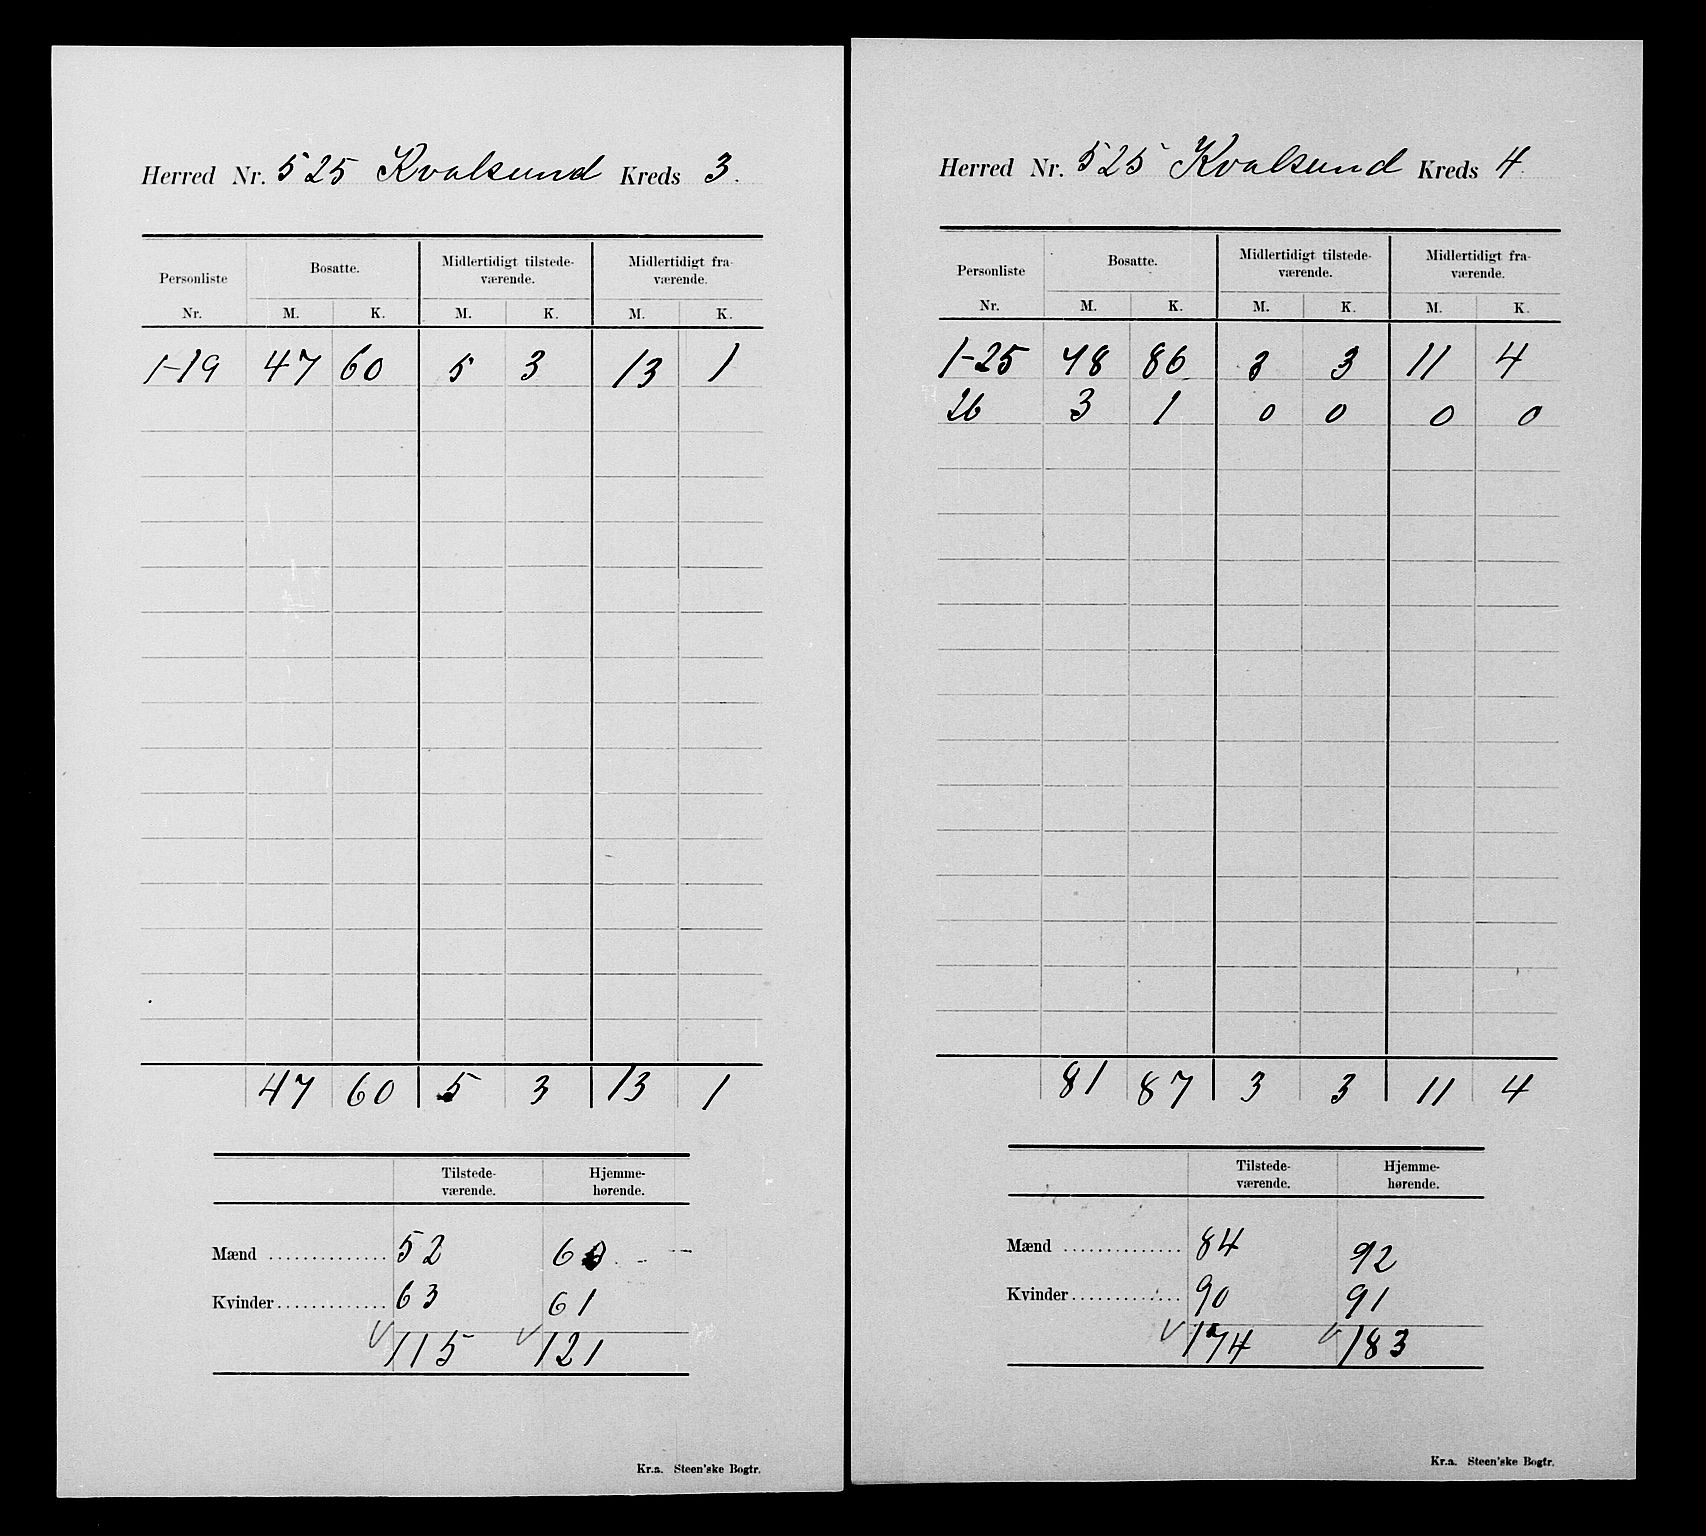 Herred Nr. 525 Kvalsund Kreds 3.
Personliste Bosatte. Midlertidigt tilstede- Midlertidigt fra-
værende. værende.
Nr. M. K. M. K. M. K.
1-19 47 60 5 3 13 1
47 60 5 3 13 1
Tilstede- Hjemme-
værende. hørende.
Mænd .............. 52 60
Kvinder ............. 63 61
115 121
Kr.a. Steen'ske Bogtr.
Herred Nr. 525 Kvalsund Kreds 4.
Personliste Bosatte. Midlertidigt tilstede- Midlertidigt fra-
værende. værende.
Nr. M. K. M. K. M. K.
1-25 78 86 3 3 11 4
26 3 1 0 0 0 0
81 87 3 3 11 4
Tilstede- Hjemme-
værende. hørende.
Mænd .............. 84 92
Kvinder ............. 90 91
174 183
Kr.a. Steen'ske Bogtr.